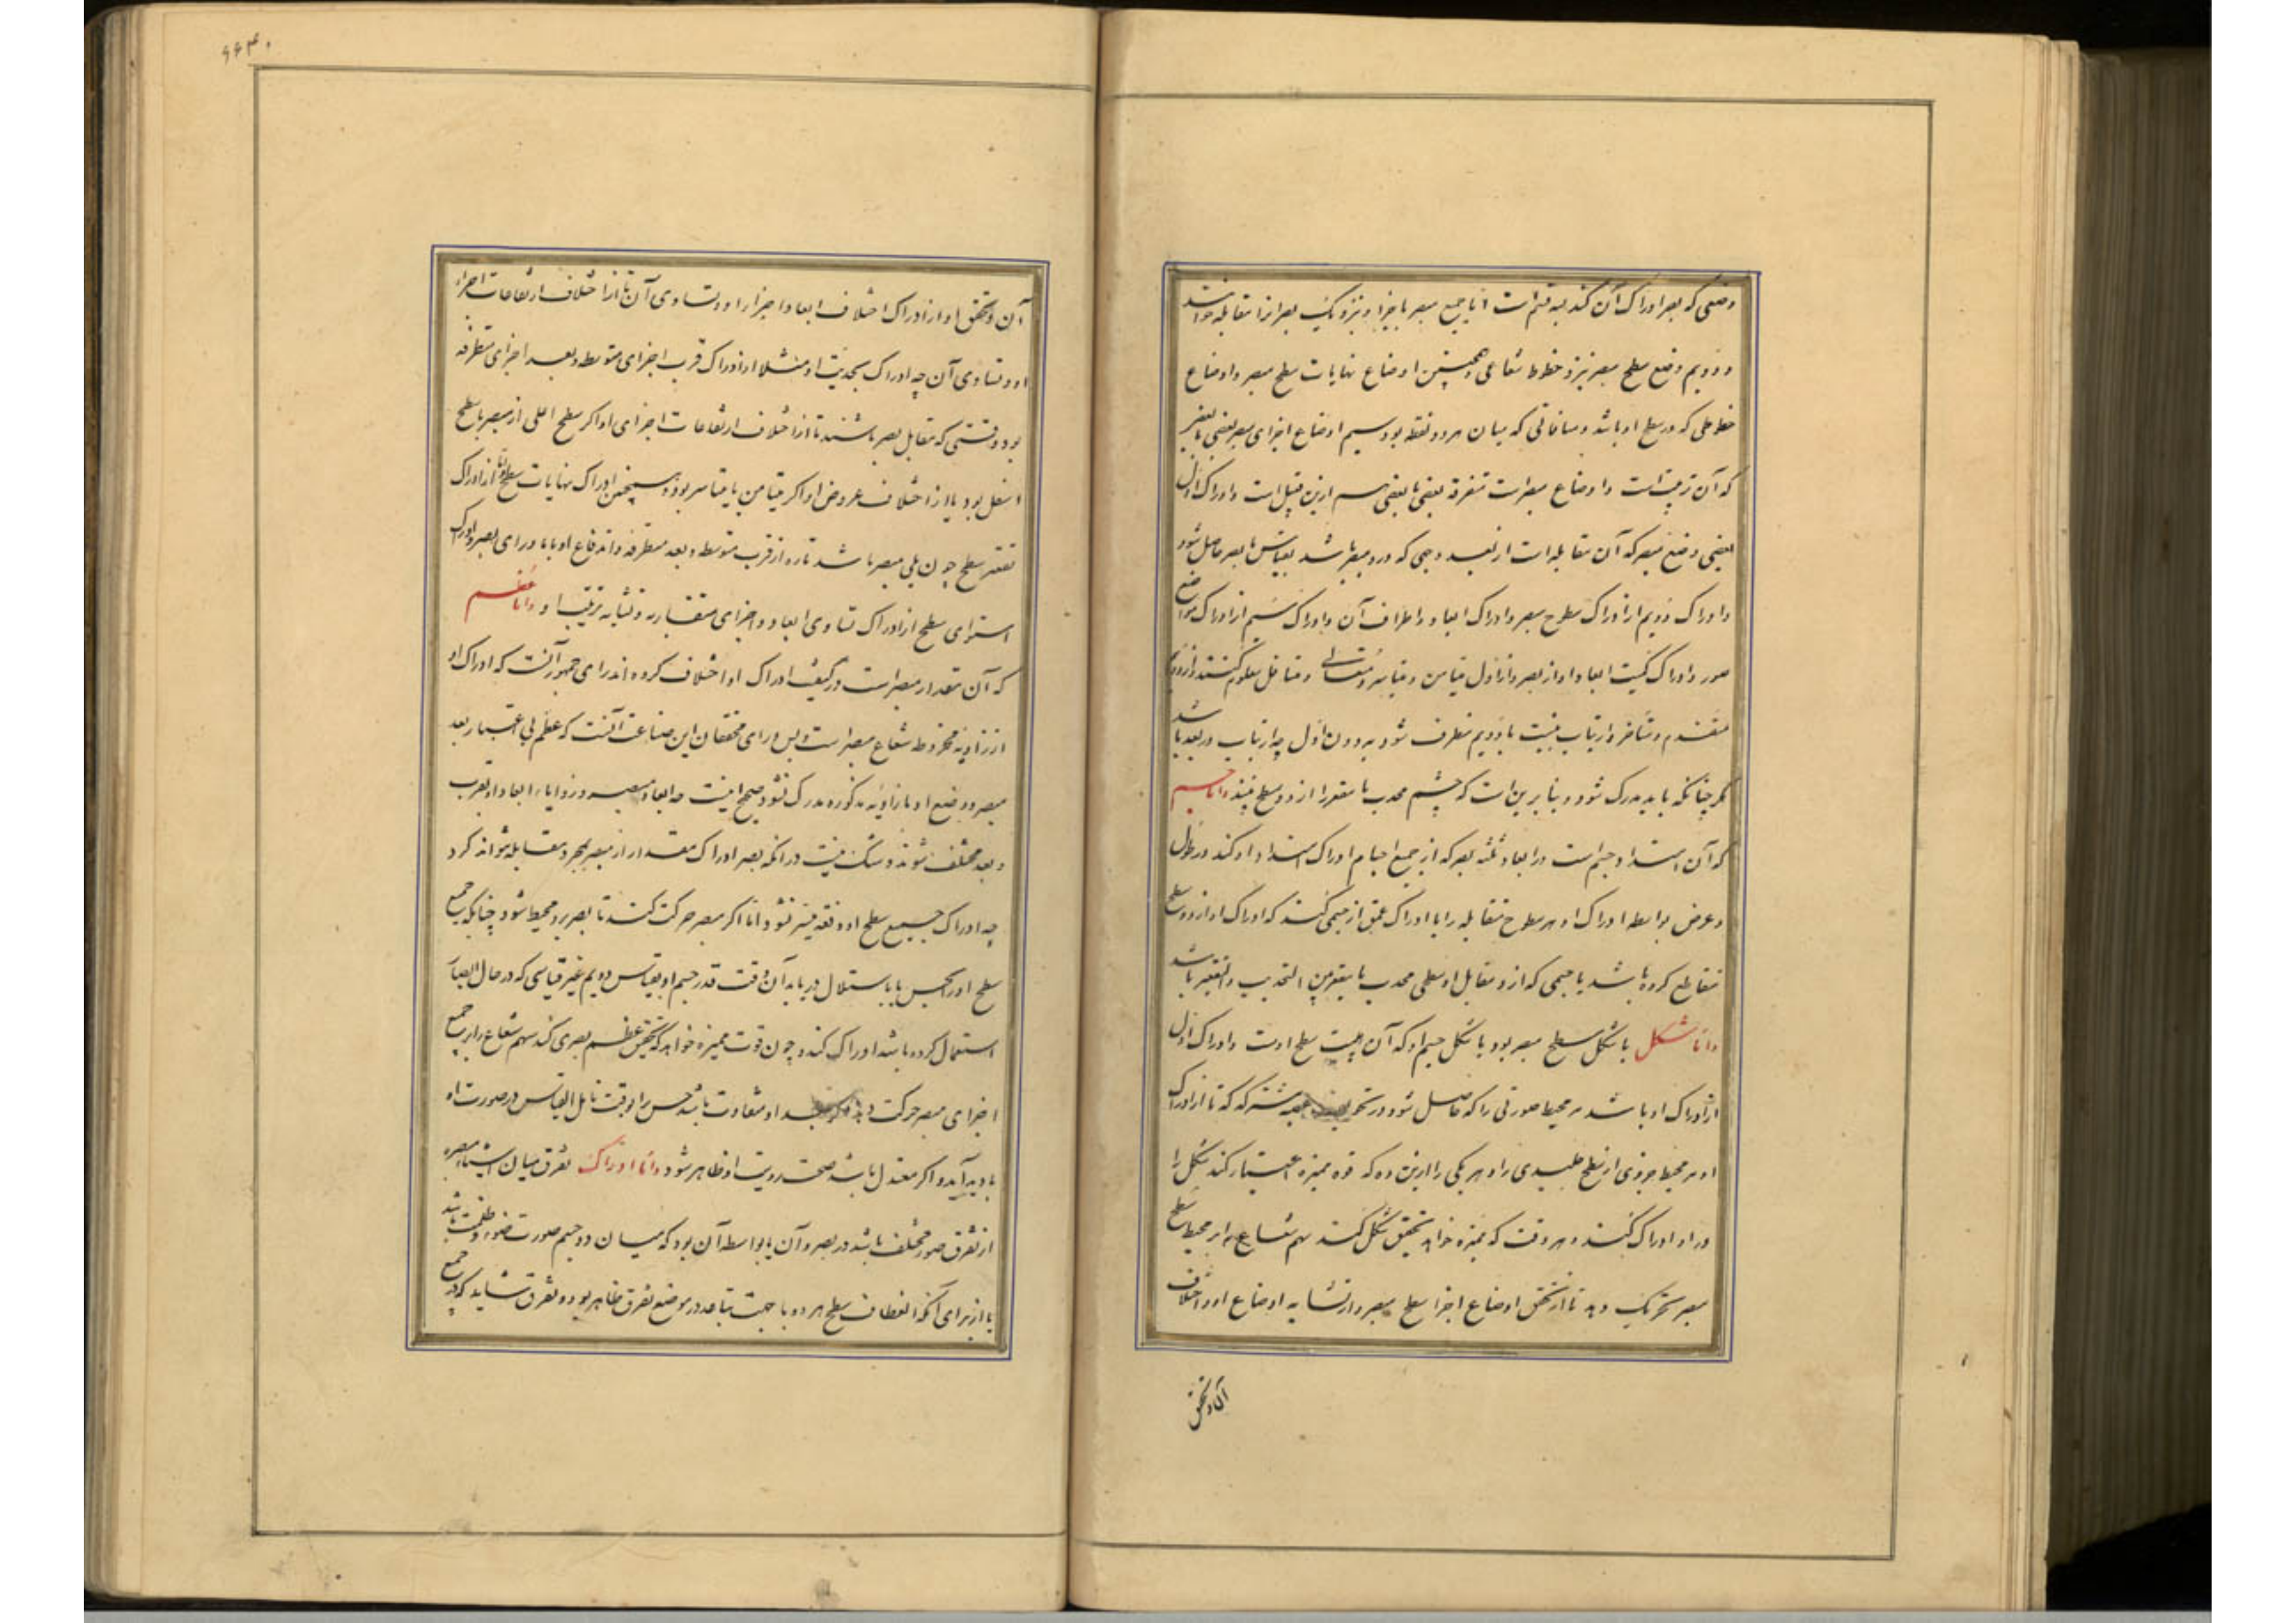 وضعی که بصر ادراک آن کند سه قسم است اما جمیع مبصر با اجزا و نزدیک بصر انرا مقابله خوانند
و دویم وضع سطح مبصر نزد خطوط شعاعی و همچنین اوضاع نهایات سطح مبصر و اوضاع
خطوطی که در سطح او باشد و مسافاتی که میان هر دو نقطه بود سیم اوضاع اجزای مبصر بعضی با بعضی
که آن ترتیب است و اوضاع مبصرات متفرقه بعضی با بعضی هم ازین قبیل است و ادراک اول
بعضی وضع مبصر که آن مقابله است از بعد و جهتی که درو مبصر باشد بقیاس با بصر حاصل شود
و ادراک دویم از ادراک سطوح مبصر و ادراک ابعاد و اطراف آن و ادراک سیم از ادراک مواضع
صور و ادراک کمیت ابعاد او از بصر و از اول متیامن و متیاسر و متعالی و متسافل معلوم کنند و از دویم
متقدم و متأخر و ارتیاب نسبت با دویم متطرف شود بدون اول چه ارتیاب در بعد باشد
مکر چنانکه باید مدرک شود و بنا برین است که چشم محدب یا مقعر را از دور مسطح بیند و اما جسم
که آن امتداد جسم است در ابعاد ثلثه بصر که از جمیع اجسام ادراک امتداد او کند در طول
و عرض بواسطه ادراک او مر سطوح متقابله را با ادراک عمق از جسمی کند که ادراک او از دو سطح
متقاطع کرده باشد یا جسمی که ازو مقابل او سطحی محدب یا مقعر بین التحدیب و التقعیر باشد
و اما شکل یا شکل سطح مبصر بود یا شکل جسم او که آن هیئت سطح اوست و ادراک اول
از ادراک او باشد مر محیط صورتی را که حاصل شود در تجویف عصبه مشترکه که تا از ادراک
او مر محیط جزوی از سطح جلیدی را و هر یکی را ازین دو که قوه ممیزه اعتبار کند شکل را
در او ادراک کند و هر وقت که ممیزه خواهد تحقیق شکل کند سهم شعاع را بر محیط سطح
مبصر تحریک دهد تا از تحقق اوضاع اجزا سطح مبصر و از تشابه اوضاع او و اختلاف
آن و تحقق
۶۶۴۰
آن و تحقق او از ادراک اختلاف ابعاد اجزا را و تساوی آن تا از اختلاف ارتفاعات اجزاء
او و تساوی آن چه ادراک تحدیت او مثلا از ادراک قرب اجزای متوسطه و بعد اجزای متطرفه
بود وقتی که مقابل بصر باشند تا از اختلاف ارتفاعات اجزای او اکر سطح اعلی از مبصر با سطح
اسفل بود یا از اختلاف عروض او اکر متیامن یا متیاسر بود و همچنین ادراک نهایات سطح و اما از ادراک
تقعر سطح چون یلی مبصر باشد تاره از قرب متوسطه و بعد متطرفه و اندفاع او با ماورای بصر و ادراک
استوای سطح از ادراک تساوی ابعاد و اجزای متقاربه و تشابه ترتیب او و اما عظم
که آن مقدار مبصر است در کیفیت ادراک او اختلاف کرده اند رای جمهور آنست که ادراک او
از زاویه مخروط شعاع مبصر است و بس و رای محققان این صناعت آنست که عظم بی اعتبار بعد
مبصر و وضع او با زاویه مذکوره مدرک نشود صحیح اینست چه ابعاد مبصر و زوایا، ابعاد او بقرب
و بعد مختلف شوند و شک نیست در انکه بصر ادراک مقدار از مبصر بمجرد مقابله تواند کرد
چه ادراک جمیع سطح او دفعه میسر نشود اما اکر مبصر حرکت کند تا بصر برو محیط شود چنانکه جمیع
سطح او را بحس یا باستدلال دریابد آن وقت قدر جسم او بقیاس دویم غیر قیاسی که در حال ابصار
استعمال کرده باشد ادراک کند و چون قوت ممیزه خواهد که تحقیق عظم بصری کند سهم شعاع را بر جمیع
اجزای مبصر حرکت دهد و اکر بعد او متفاوت باشد حس را بوقت تامل التباس در صورت او
بادید آید و اکر معتدل باشد صحت رویت او ظاهر شود و اما ادراک تفرق میان اشیاء مبصره
از تفرق صور مختلف باشد در بصر و آن یا بواسطه آن بود که میان دو جسم صورت ضوء و ظلمت باشد
یا از برای آنکه انعطاف سطح هر دو با جهت تباعد در موضع تفرق ظاهر بود و تفرق شاید که در جمیع